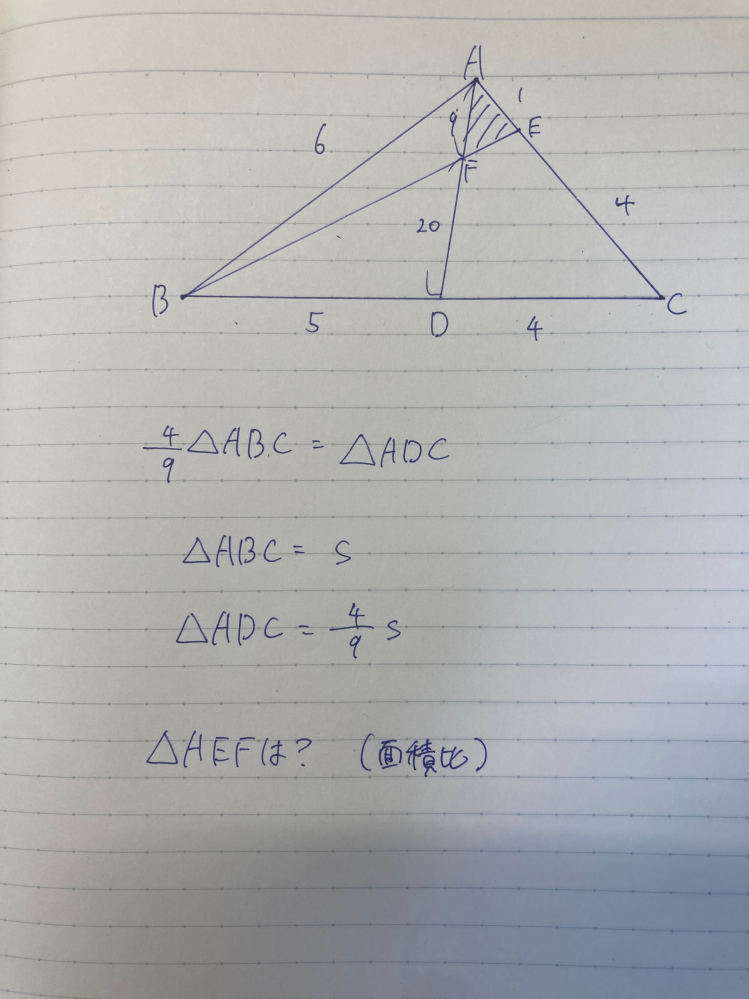 A
1
6
9
E
F
4
20
B
D
C
5
4
4/9 △ABC = △ADC
△ABC = S
△ADC = 4/9 S
△AEFは? (面積比)